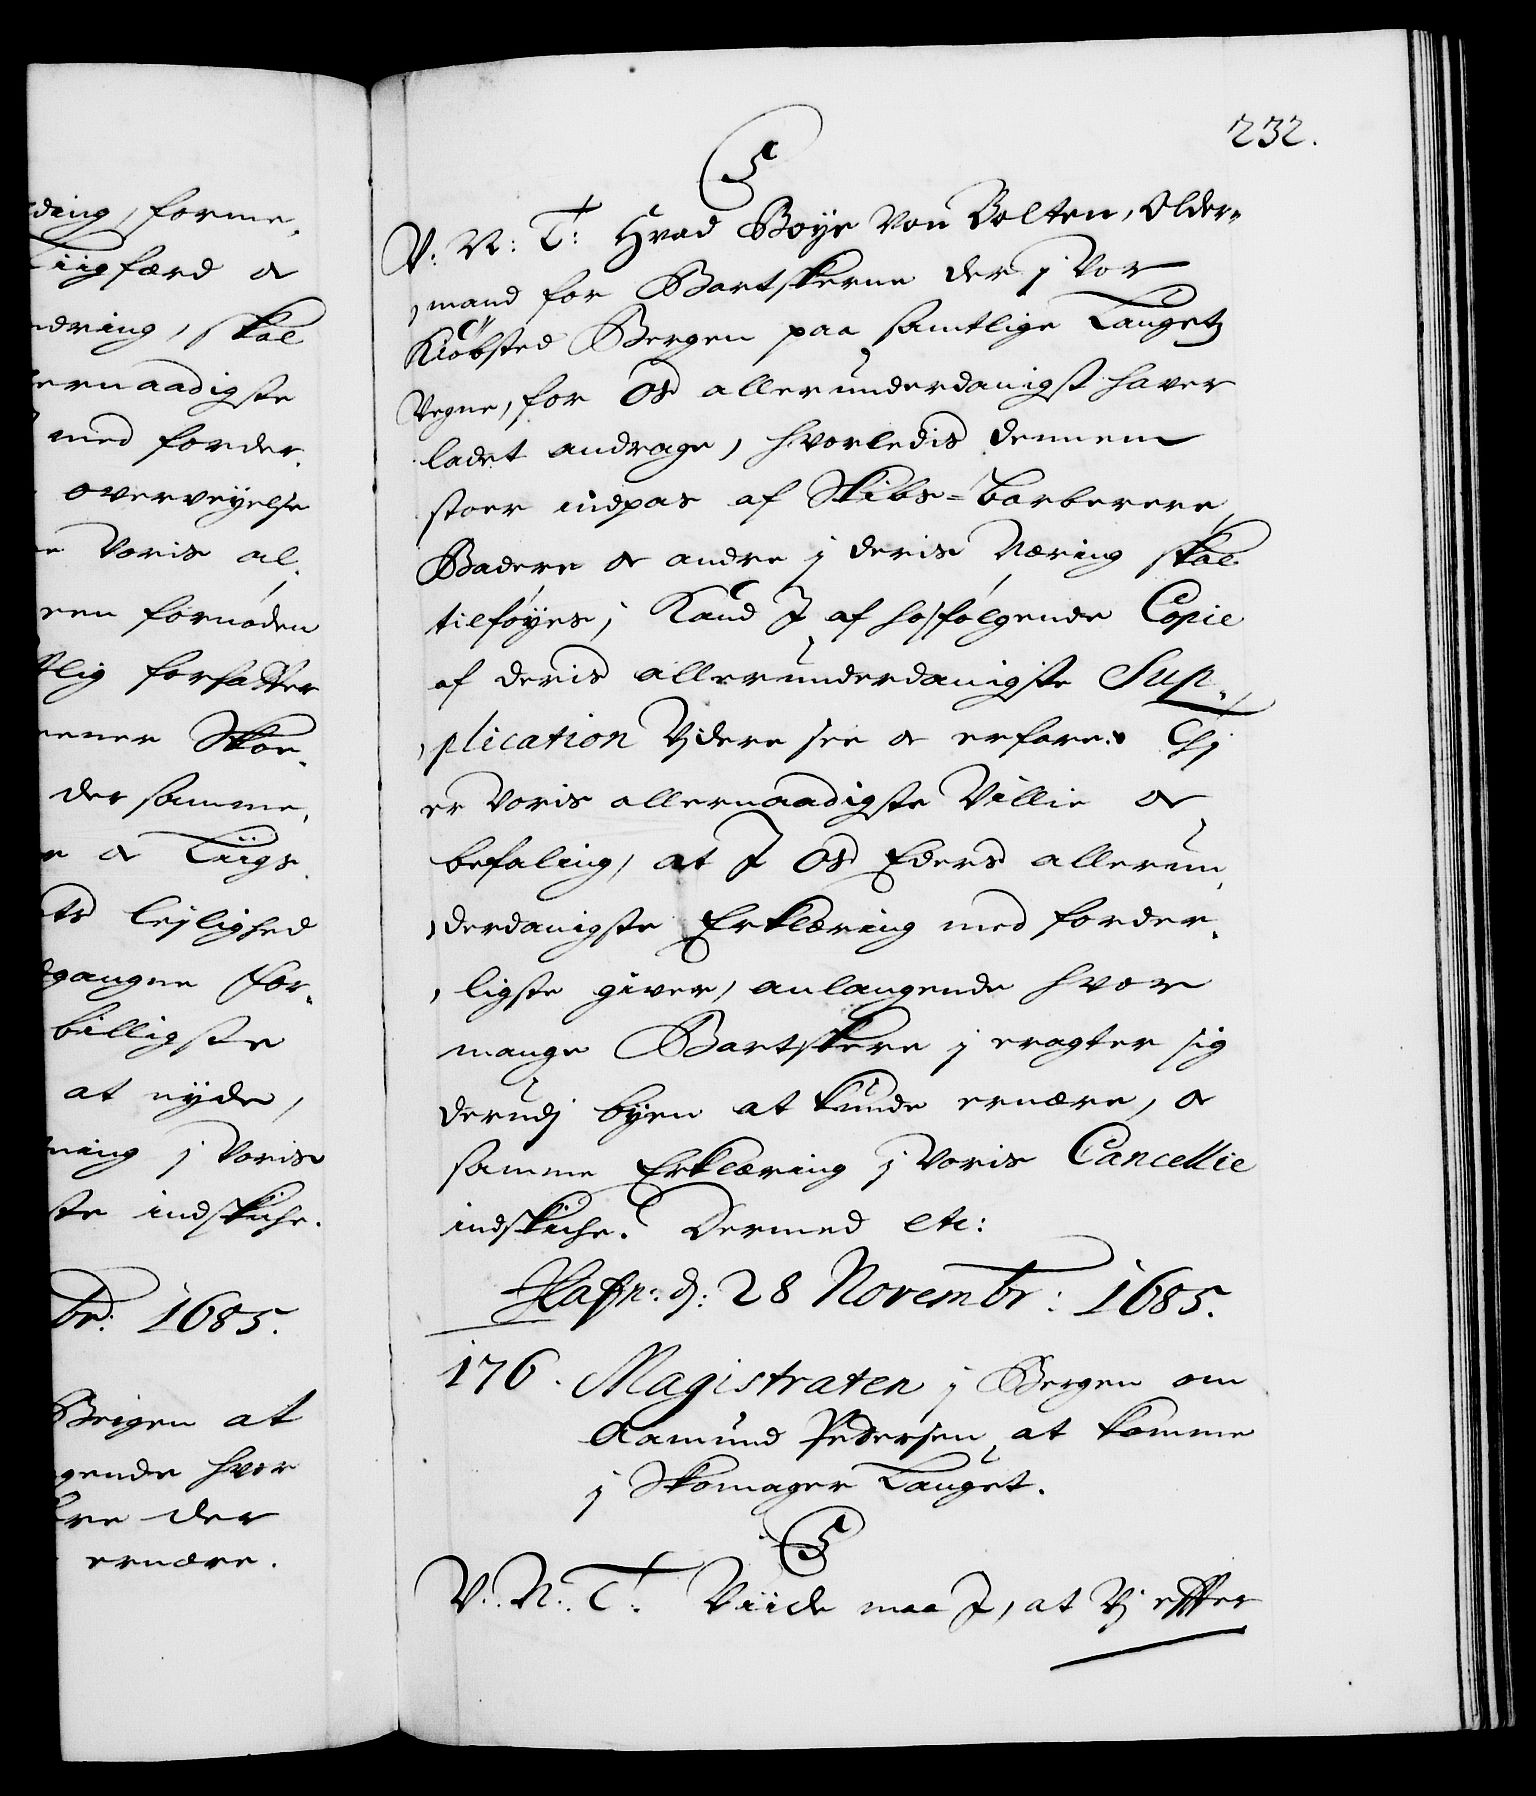 ding, forme,
Liigfærd oc
ndring, skal
ernaadigste
med forder,
overveyelse
e Voris al,
een fornøden
tlig forfatter
eener Skoe,
der samme,
e oc Liigs,
ts leylighed
gangne for,
billigste
at nyde,
ning j Voris
ste indskiche.
br: 1685.
Bergen at
gende hvor
ere der
ernære.
232.
C5
V: N: T: Hvad Boye Von Bolten, Older,,
,mand for Bartskerne der j Vor
Kiøbsted Bergen paa samtlige Laugetz
Vegne, for Os allerunderdanigst haver
ladet andrage, hvorledis dennem
stoer indpas af Skibs-barberere,
Badere oc andre j deris Næring skal
tilføyes, Kand I af hosfølgende Copie
af deris allerunderdanigste Sup,,
,plication Vjdere see oc erfare. Thj
er Voris allernaadigste Villie oc
befaling, at I Os Eders allerun,
,derdanigste Erklæring med forder,
,ligste giver, anlangende hvor
mange Bartskere j eragter sig
derudj byen at kunde ernære, oc
samme Erklæring j Voris Cancellie
indskiche. Dermed etc:
Hafn: d: 28 Novembr: 1685.
176. Magistraten j Bergen om
Aamund Pedersen at komme
j Skomager Lauget.
C5
V: N: T: Viide maa I, at Vj effter